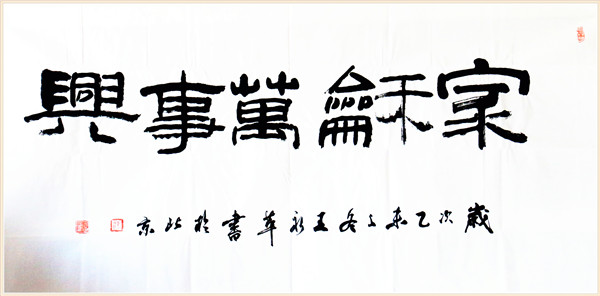 家龢萬事興
歲次乙未之冬王永華書於北京